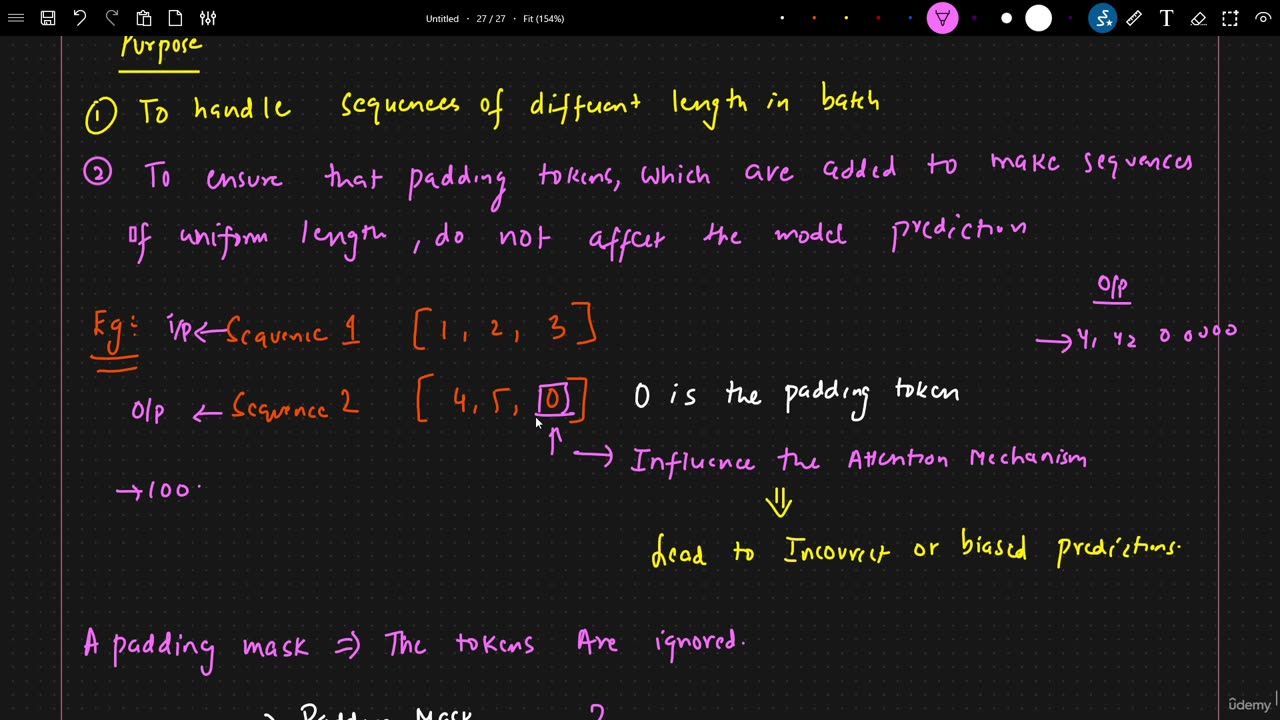 Untitled • 27 / 27 • Fit (154%)
Purpose
① To handle sequences of different length in batch
② To ensure that padding tokens, which are added to make sequences
of uniform length, do not affect the model prediction
O/p
Eg: i/p ← Sequence 1 [1, 2, 3]
→ 4, 42 0 0000
O/p ← Sequence 2 [4, 5, 0] 0 is the padding token
↑ → Influence the Attention Mechanism
→ 100
⇓
Lead to Incorrect or biased predictions.
A padding mask ⇒ The tokens Are ignored.
→ Padding Mask
T
ûdemy